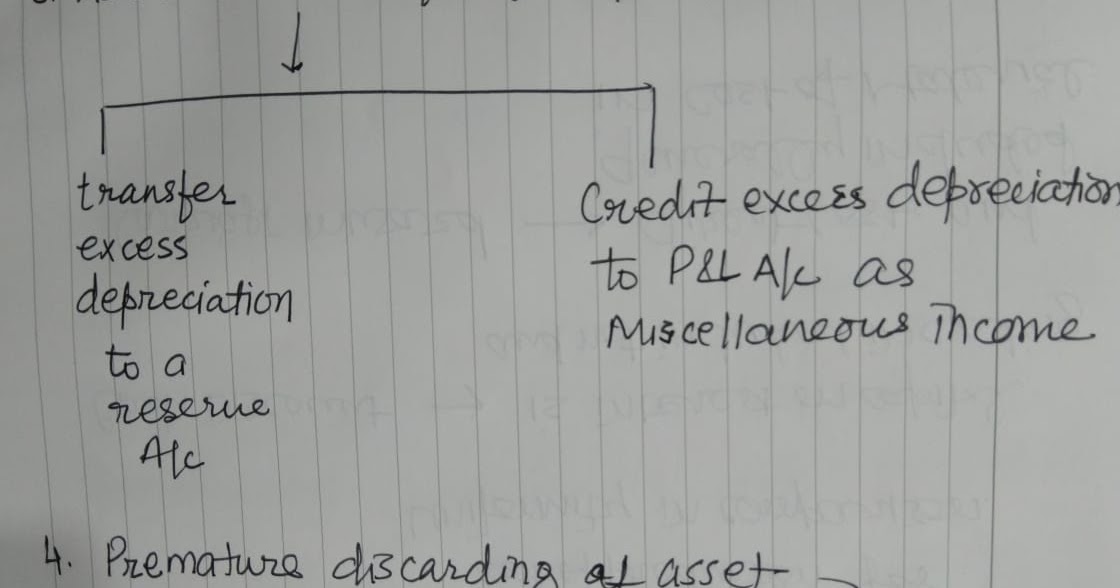 transfer
excess
depreciation
to a
reserve
A/c
Credit excess depreciation
to P&L A/c as
Miscellaneous income
4. Premature discarding of asset